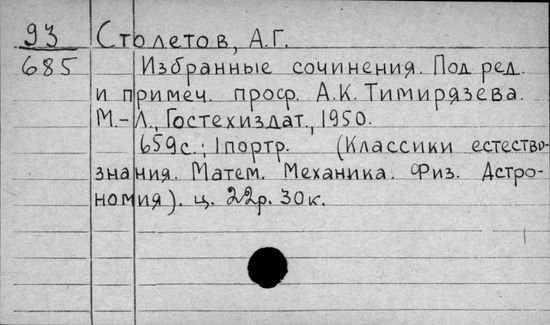 93 Столетов, А.Г.
685 Избранные сочинения. Под ред.
и примеч. проф. А.К. Тимирязева.
М.-Л., Гостехиздат., 1950.
659с.; 1портр. (Классики естество-
знания. Матем. Механика. Физ. Астро-
номия). ц. 22р. 30к.